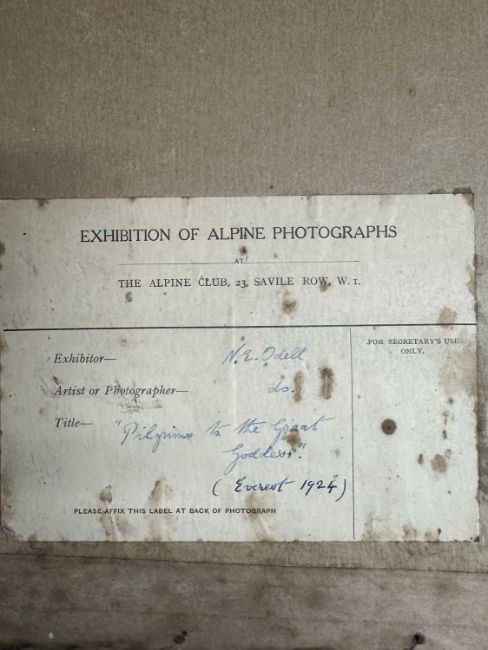 EXHIBITION OF ALPINE PHOTOGRAPHS
AT
THE ALPINE CLUB, 23, SAVILE ROW, W. 1.
FOR SECRETARY'S USE
ONLY.
Exhibitor— N. E. Odell
Artist or Photographer— do.
Title— "Pilgrims to the Great
Goddess."
(Everest 1924)
PLEASE AFFIX THIS LABEL AT BACK OF PHOTOGRAPH